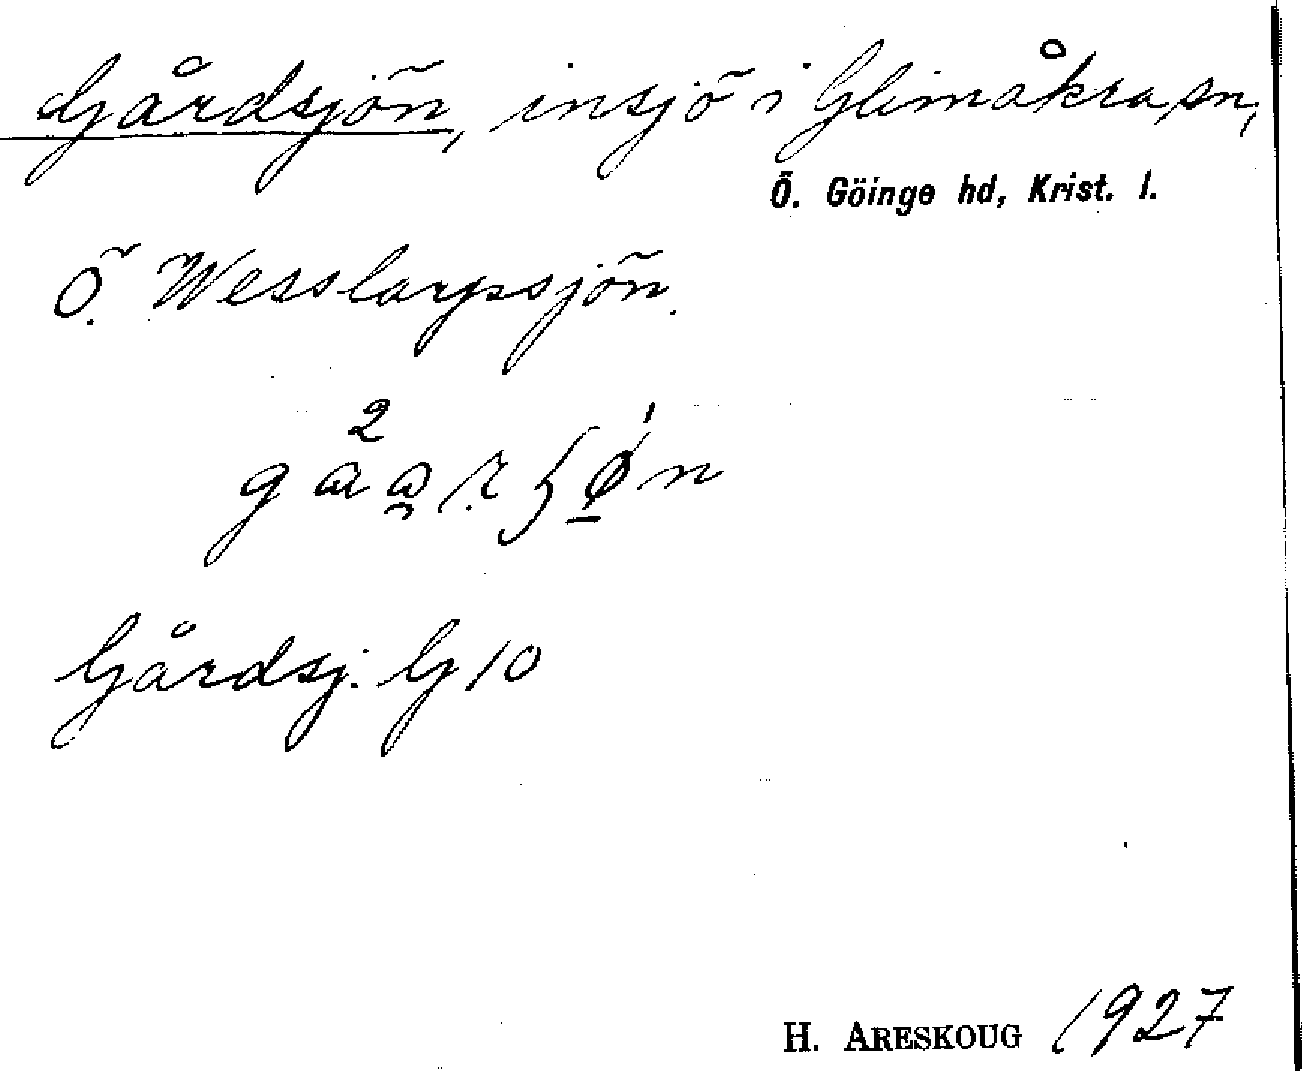 Gårdsjön, insjö i Glimåkra sn,
Ö. Göinge hd, Krist. l.
Ö. Wesslarpssjön.
Gårdsj. G 10
H. ARESKOUG 1927